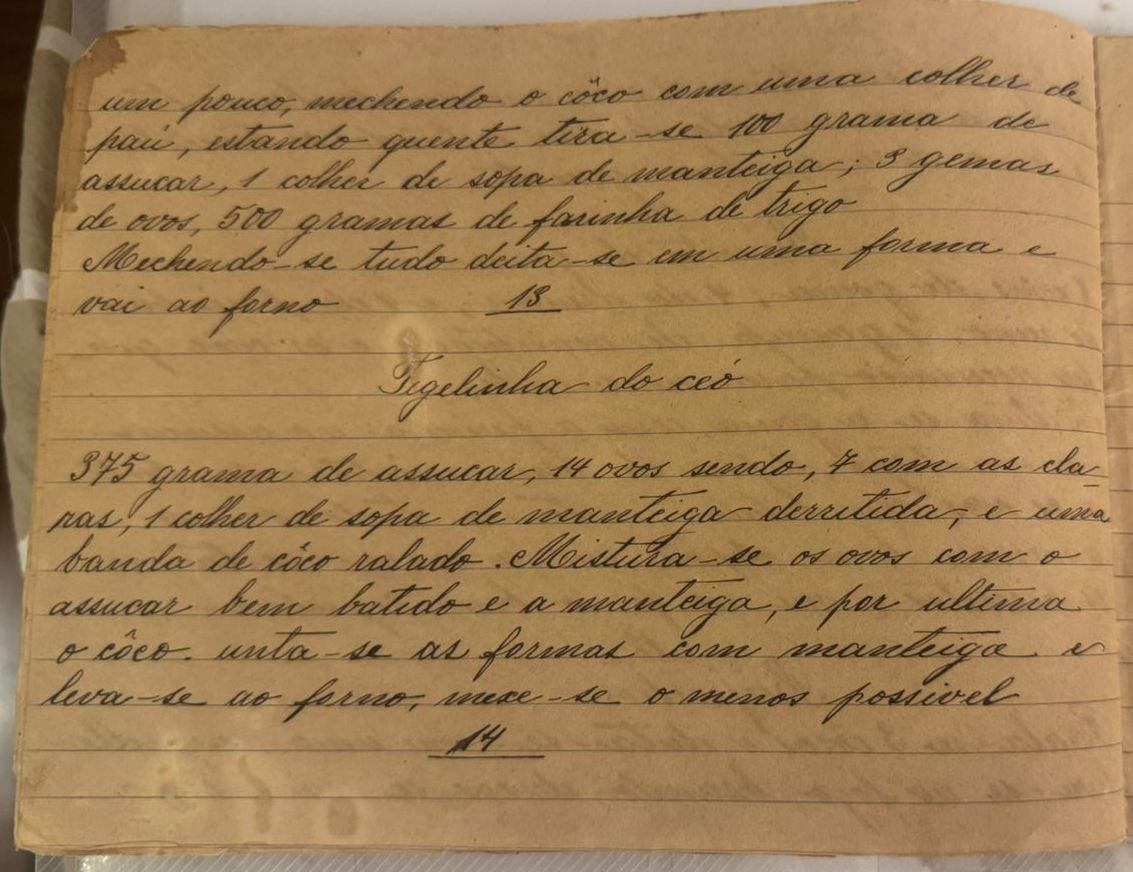 um pouco, mechendo o côco com uma colher de
pau, estando quente tira-se 100 grama de
assucar, 1 colher de sopa de manteiga; 3 gemas
de ovos, 500 gramas de farinha de trigo
Mechendo-se tudo deita-se em uma forma e
vai ao forno 13
Tegelinha do ceó
375 grama de assucar, 14 ovos sendo, 7 com as cla-
ras, 1 colher de sopa de manteiga derretida, e uma
banda de côco ralado. Mistura-se os ovos com o
assucar bem batido e a manteiga, e por ultima
o côco. unta-se as formas com manteiga e
leva-se ao forno, mexe-se o menos possivel
14